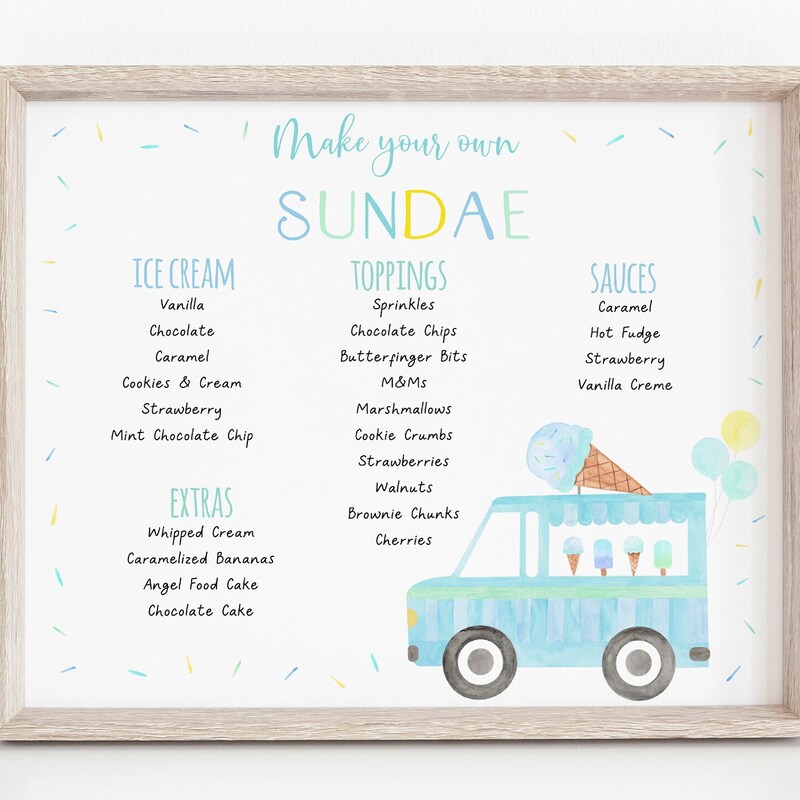 Make your own
SUNDAE
ICE CREAM
Vanilla
Chocolate
Caramel
Cookies & Cream
Strawberry
Mint Chocolate Chip
EXTRAS
Whipped Cream
Caramelized Bananas
Angel Food Cake
Chocolate Cake
TOPPINGS
Sprinkles
Chocolate Chips
Butterfinger Bits
M&Ms
Marshmallows
Cookie Crumbs
Strawberries
Walnuts
Brownie Chunks
Cherries
SAUCES
Caramel
Hot Fudge
Strawberry
Vanilla Creme